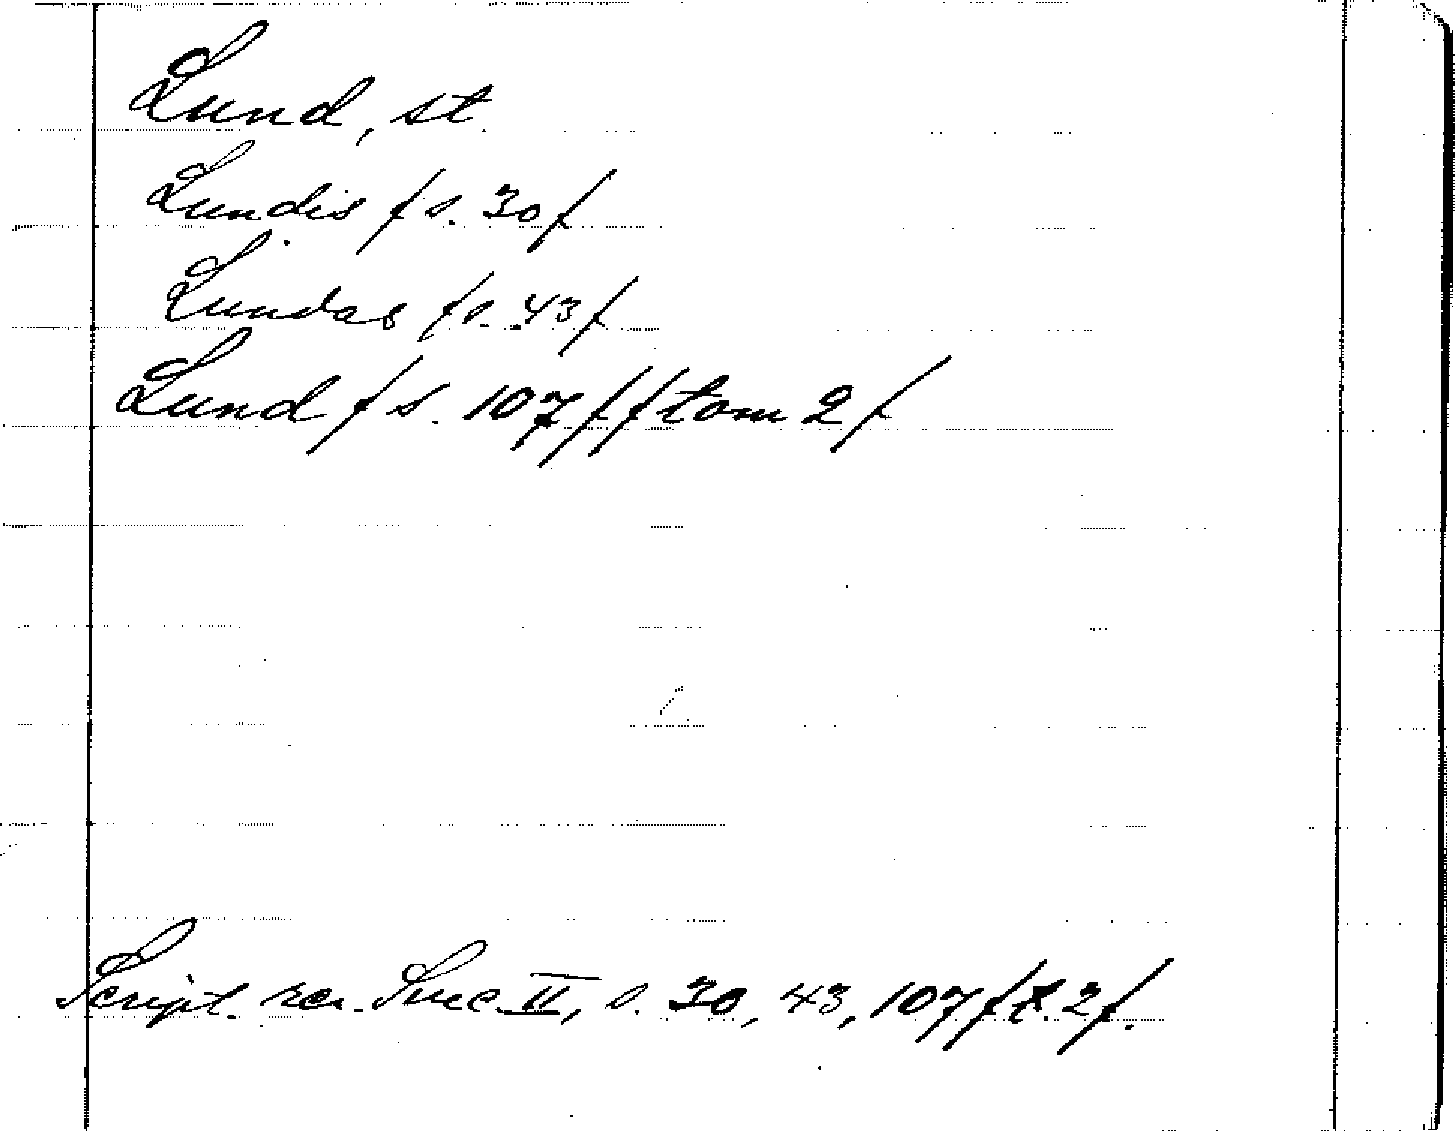 Lund, st.
Lundis /s. 30/
Lundas /s. 43/
Lund /s. 107/ /tom 2/
Script. rer. Suec. II, s. 30, 43, 107 /t. 2/.